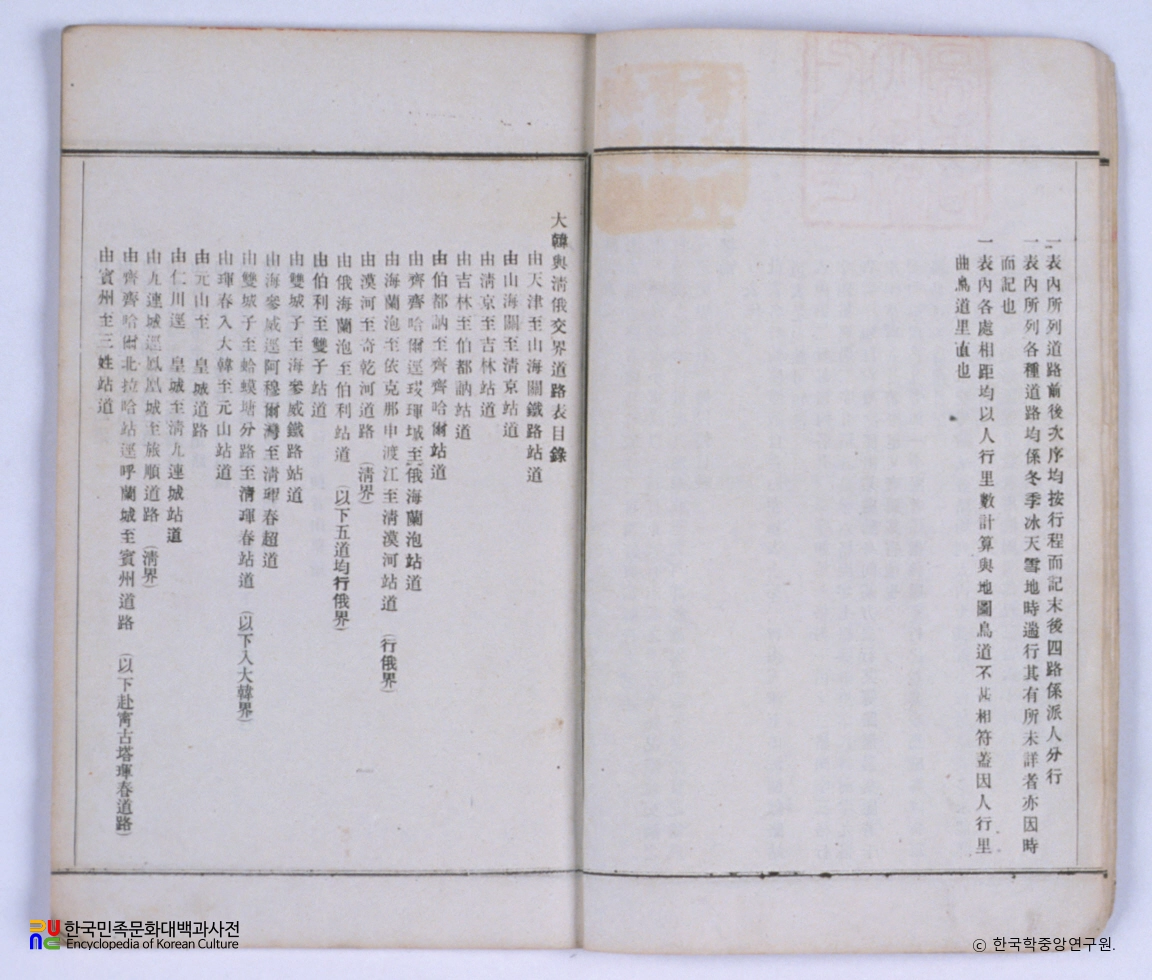 一表內所列道路前後次序均按行程而記末後四路係派人分行
一表內所列各種道路均係冬季冰天雪地時邁行其有所未詳者亦因時
而記也
一表內各處相距均以人行里數計算與地圖鳥道不甚相符蓋因人行里
曲鳥道里直也
大韓與淸俄交界道路表目錄
由天津至山海關鐵路站道
由山海關至淸京站道
由淸京至吉林站道
由吉林至伯都訥站道
由伯都訥至齊齊哈爾站道
由齊齊哈爾逕琿城至俄海蘭泡站道
由海蘭泡至依克那申渡江至淸漠河站道 (行俄界)
由漠河至奇乾河道路 (淸界)
由俄海蘭泡至伯利站道 (以下五道均行俄界)
由伯利至雙子站道
由雙城子至海參威鐵路站道
由海參威逕阿穆爾灣至淸琿春超道
由雙城子至蛤蟆塘分路至淸琿春站道 (以下入大韓界)
由琿春入大韓至元山站道
由元山至 皇城道路
由仁川逕 皇城至淸九連城站道
由九連城逕鳳凰城至旅順道路 (淸界)
由齊齊哈爾北拉哈站逕呼蘭城至賓州道路 (以下赴甯古塔琿春道路)
由賓州至三姓站道
一
한국민족문화대백과사전
Encyclopedia of Korean Culture
© 한국학중앙연구원.